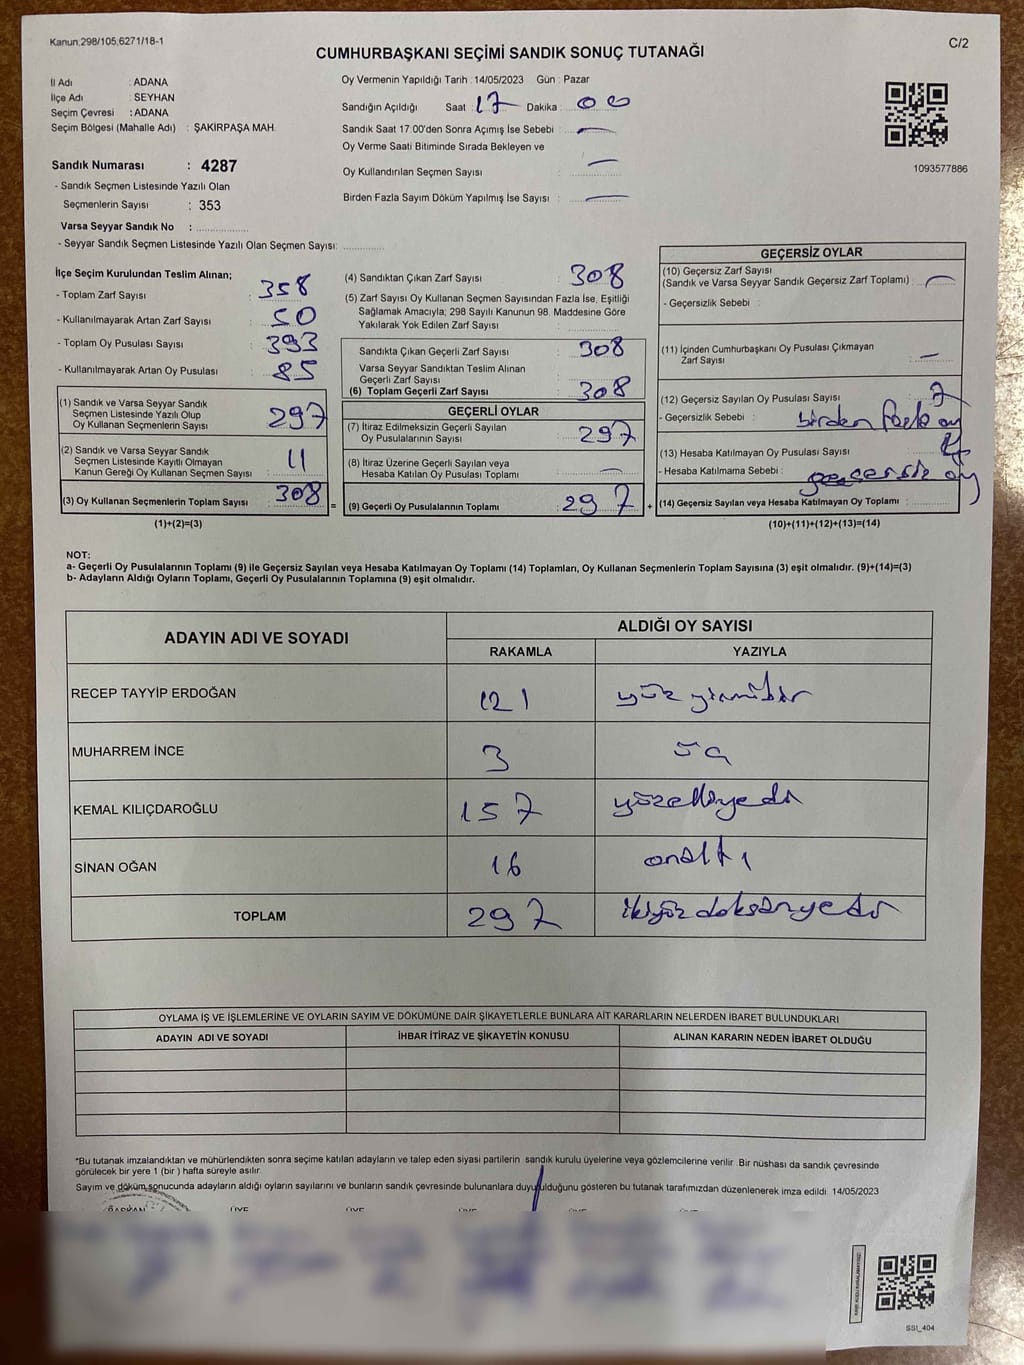 Kanun:298/105,6271/18-1
C/2
CUMHURBAŞKANI SEÇİMİ SANDIK SONUÇ TUTANAĞI
İl Adı : ADANA
İlçe Adı : SEYHAN
Seçim Çevresi : ADANA
Seçim Bölgesi (Mahalle Adı) : ŞAKİRPAŞA MAH.
Sandık Numarası : 4287
- Sandık Seçmen Listesinde Yazılı Olan
Seçmenlerin Sayısı : 353
Varsa Seyyar Sandık No :
- Seyyar Sandık Seçmen Listesinde Yazılı Olan Seçmen Sayısı:
Oy Vermenin Yapıldığı Tarih : 14/05/2023 Gün : Pazar
Sandığın Açıldığı Saat : 17 Dakika : 00
Sandık Saat 17:00'den Sonra Açımış İse Sebebi : —
Oy Verme Saati Bitiminde Sırada Bekleyen ve
Oy Kullandırılan Seçmen Sayısı : —
Birden Fazla Sayım Döküm Yapılmış İse Sayısı : —
1093577886
İlçe Seçim Kurulundan Teslim Alınan;
- Toplam Zarf Sayısı : 358
- Kullanılmayarak Artan Zarf Sayısı : 50
- Toplam Oy Pusulası Sayısı : 393
- Kullanılmayarak Artan Oy Pusulası : 85
(1) Sandık ve Varsa Seyyar Sandık
Seçmen Listesinde Yazılı Olup
Oy Kullanan Seçmenlerin Sayısı : 297
(2) Sandık ve Varsa Seyyar Sandık
Seçmen Listesinde Kayıtlı Olmayan
Kanun Gereği Oy Kullanan Seçmen Sayısı : 11
(3) Oy Kullanan Seçmenlerin Toplam Sayısı : 308
(1)+(2)=(3)
=
(4) Sandıktan Çıkan Zarf Sayısı : 308
(5) Zarf Sayısı Oy Kullanan Seçmen Sayısından Fazla İse, Eşitliği
Sağlamak Amacıyla; 298 Sayılı Kanunun 98. Maddesine Göre
Yakılarak Yok Edilen Zarf Sayısı :
Sandıkta Çıkan Geçerli Zarf Sayısı : 308
Varsa Seyyar Sandıktan Teslim Alınan
Geçerli Zarf Sayısı :
(6) Toplam Geçerli Zarf Sayısı : 308
GEÇERLİ OYLAR
(7) İtiraz Edilmeksizin Geçerli Sayılan
Oy Pusulalarının Sayısı : 297
(8) İtiraz Üzerine Geçerli Sayılan veya
Hesaba Katılan Oy Pusulası Toplamı : —
(9) Geçerli Oy Pusulalarının Toplamı : 297
+
GEÇERSİZ OYLAR
(10) Geçersiz Zarf Sayısı
(Sandık ve Varsa Seyyar Sandık Geçersiz Zarf Toplamı) : —
- Geçersizlik Sebebi :
(11) İçinden Cumhurbaşkanı Oy Pusulası Çıkmayan
Zarf Sayısı : —
(12) Geçersiz Sayılan Oy Pusulası Sayısı : 7
- Geçersizlik Sebebi : birden fazla oy
(13) Hesaba Katılmayan Oy Pusulası Sayısı : 4
- Hesaba Katılmama Sebebi : geçersiz oy
(14) Geçersiz Sayılan veya Hesaba Katılmayan Oy Toplamı :
(10)+(11)+(12)+(13)=(14)
NOT:
a- Geçerli Oy Pusulalarının Toplamı (9) ile Geçersiz Sayılan veya Hesaba Katılmayan Oy Toplamı (14) Toplamları, Oy Kullanan Seçmenlerin Toplam Sayısına (3) eşit olmalıdır. (9)+(14)=(3)
b- Adayların Aldığı Oyların Toplamı, Geçerli Oy Pusulalarının Toplamına (9) eşit olmalıdır.
ADAYIN ADI VE SOYADI
ALDIĞI OY SAYISI
RAKAMLA YAZIYLA
RECEP TAYYİP ERDOĞAN 121 yüz yirmibir
MUHARREM İNCE 3 üç
KEMAL KILIÇDAROĞLU 157 yüzelliyedi
SİNAN OĞAN 16 onaltı
TOPLAM 297 ikiyüz doksanyedi
OYLAMA İŞ VE İŞLEMLERİNE VE OYLARIN SAYIM VE DÖKÜMÜNE DAİR ŞİKAYETLERLE BUNLARA AİT KARARLARIN NELERDEN İBARET BULUNDUKLARI
ADAYIN ADI VE SOYADI İHBAR İTİRAZ VE ŞİKAYETİN KONUSU ALINAN KARARIN NEDEN İBARET OLDUĞU
*Bu tutanak imzalandıktan ve mühürlendikten sonra seçime katılan adayların ve talep eden siyasi partilerin sandık kurulu üyelerine veya gözlemcilerine verilir. Bir nüshası da sandık çevresinde
görülecek bir yere 1 (bir) hafta süreyle asılır.
Sayım ve döküm sonucunda adayların aldığı oyların sayılarını ve bunların sandık çevresinde bulunanlara duyurulduğunu gösteren bu tutanak tarafımızdan düzenlenerek imza edildi. 14/05/2023
BAŞKAN ÜYE ÜYE ÜYE ÜYE ÜYE
SSI_404